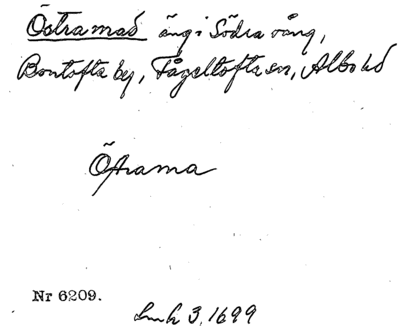 Östramad äng i Södra vång,
Bontofta by, Fågeltofta sn, Albo hd
Östrama
Nr 6209.
Lmk 3, 1699